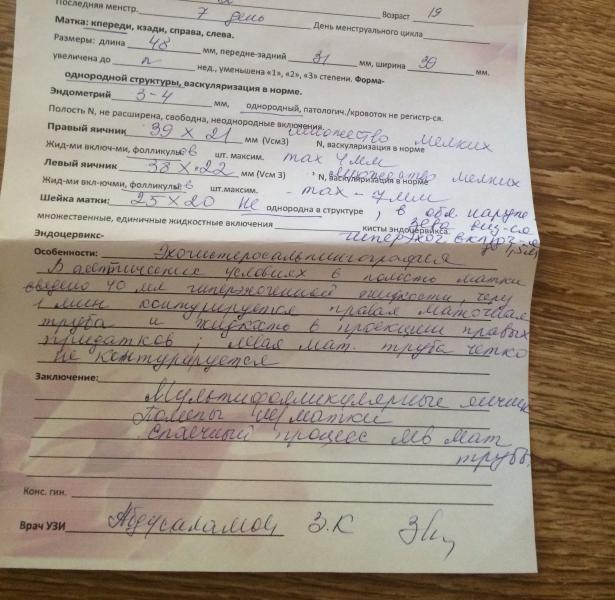 Последняя менстр. Возраст 19
7 день День менструального цикла
Матка: кпереди, кзади, справа, слева.
Размеры: длина 48 мм, передне-задний 31 мм, ширина 39 мм.
увеличена до n нед., уменьшена «1», «2», «3» степени. Форма-
однородной структуры, васкуляризация в норме.
Эндометрий 3-4 мм, однородный, патологич./кровоток не регистр-ся.
Полость N, не расширена, свободна, неоднородные включения
Правый яичник 39 х 21 мм (Vсм3) множество мелких
N, васкуляризация в норме
Жид-ми вклю-ми, фолликулы шт. максим. max 4 мм
Левый яичник 38 х 22 мм (Vсм 3) множество мелких
N, васкуляризация в норме
Жид-ми вкл-ючми, фолликулы шт.максим. - max - 7 мм
Шейка матки: 25 х 20 не однородна в структуре, в обл. наруж-
множественные, единичные жидкостные включения кисты эндоцервикса. зева
Эндоцервикс- гиперэхог. включ-я
Особенности: Эхогистеросальпингография
В асептических условиях в полость матки
введено 40 мл гиперэхогенной жидкости, через
1 мин контурируется правая маточная
труба и жидкость в проекции правых
придатков; левая мат. труба четко
не контурируется
Заключение:
Мультифолликулярные яичник
матки
Спаечный процесс мат
трубы.
Конс. гин.
Врач УЗИ Абдусаламов З.К